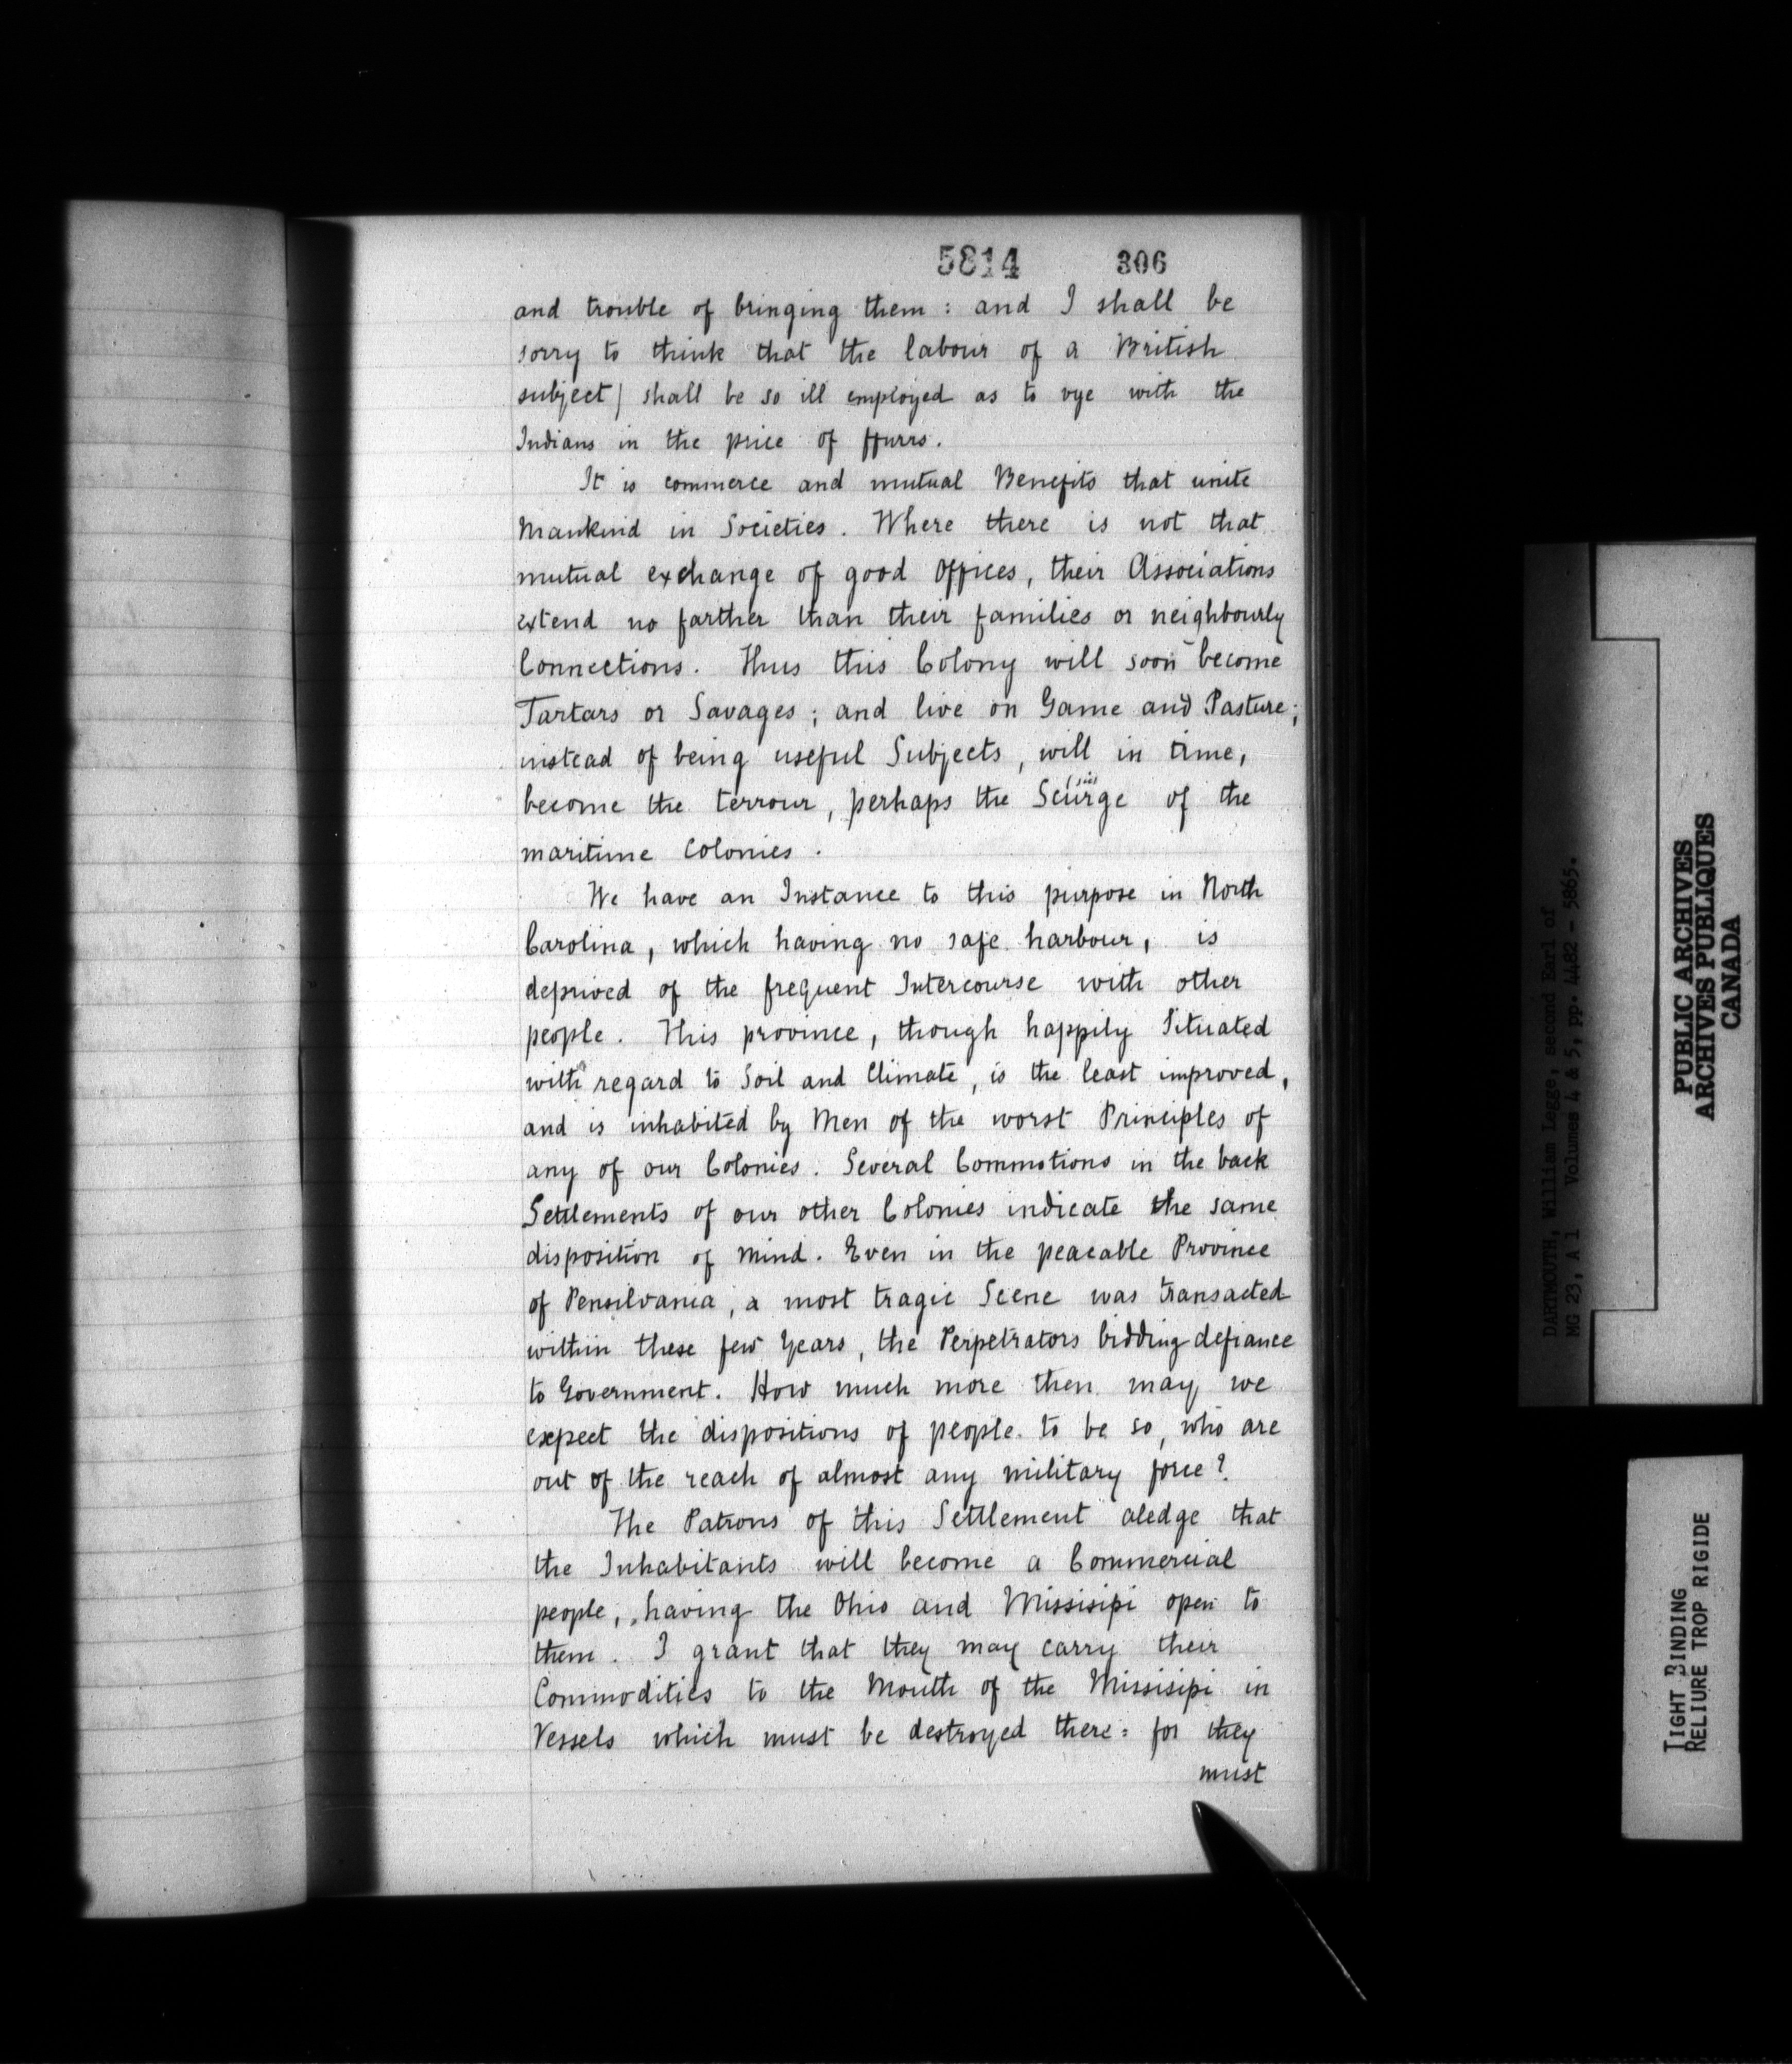 5814 306
and trouble of bringing them : and I shall be
sorry to think that the labour of a British
subject / shall be so ill employed as to vye with the
Indians in the price of ffurrs.
It is commerce and mutual Benefits that unite
Mankind in Societies. Where there is not that
mutual exchange of good Offices, their Associations
extend no farther than their families or neighbourly
Connections. Thus this Colony will soon become
Tartars or Savages ; and live on Game and Pasture ;
instead of being useful Subjects, will in time,
(sic)
become the terrour, perhaps the Scurge of the
maritime Colonies.
We have an Instance to this purpose in North
Carolina, which having no safe harbour, is
deprived of the frequent Intercourse with other
people. This province, though happily Situated
with regard to Soil and Climate, is the least improved,
and is inhabited by Men of the worst Principles of
any of our Colonies. Several Commotions in the back
Settlements of our other Colonies indicate the same
disposition of Mind. Even in the peacable Province
of Pensilvania, a most tragic Scene was transacted
within these few Years, the Perpetrators bidding defiance
to Government. How much more then may we
expect the dispositions of people to be so, who are
out of the reach of almost any military force?
The Patrons of this Settlement aledge that
the Inhabitants will become a Commercial
people, having the Ohio and Missisipi open to
them. I grant that they may carry their
Commodities to the Mouth of the Missisipi in
Vessels which must be destroyed there : for they
must
DARTMOUTH, William Legge, second Earl of
MG 23, A 1 Volumes 4 & 5, pp. 4482 - 5865.
PUBLIC ARCHIVES
ARCHIVES PUBLIQUES
CANADA
TIGHT BINDING
RELIURE TROP RIGIDE